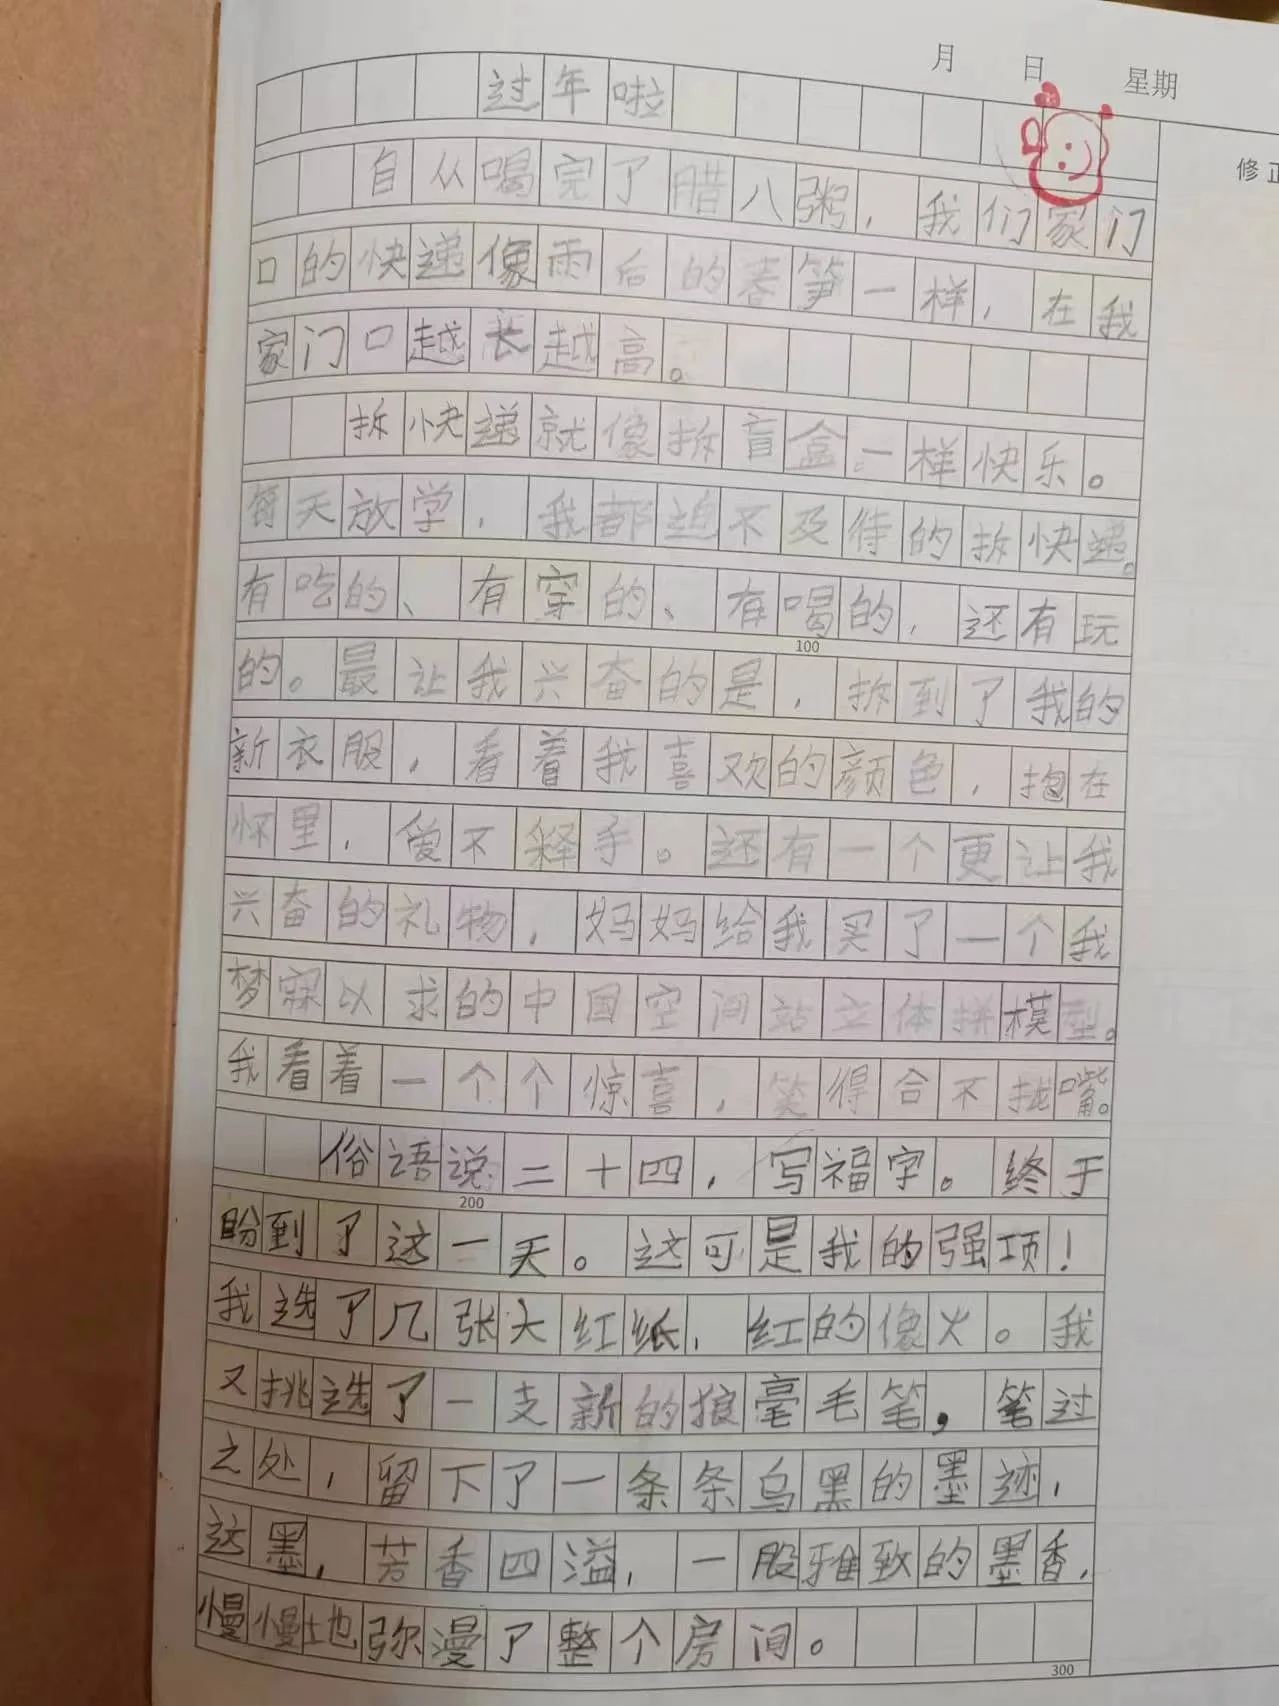 月 日 星期
过年啦
修正
自从喝完了腊八粥，我们家门
口的快递像雨后的春笋一样，在我
家门口越长越高。
拆快递就像拆盲盒一样快乐。
每天放学，我都迫不及待的拆快递。
有吃的、有穿的、有喝的，还有玩
100
的。最让我兴奋的是，拆到了我的
新衣服，看着我喜欢的颜色，抱在
怀里，爱不释手。还有一个更让我
兴奋的礼物，妈妈给我买了一个我
梦寐以求的中国空间站立体拼模型。
我看着一个个惊喜，笑得合不拢嘴。
俗语说二十四，写福字。终于
200
盼到了这一天。这可是我的强项！
我选了几张大红纸，红的像火。我
又挑选了一支新的狼毫毛笔，笔过
之处，留下了一条条乌黑的墨迹，
这墨，芳香四溢，一股雅致的墨香，
慢慢地弥漫了整个房间。
300